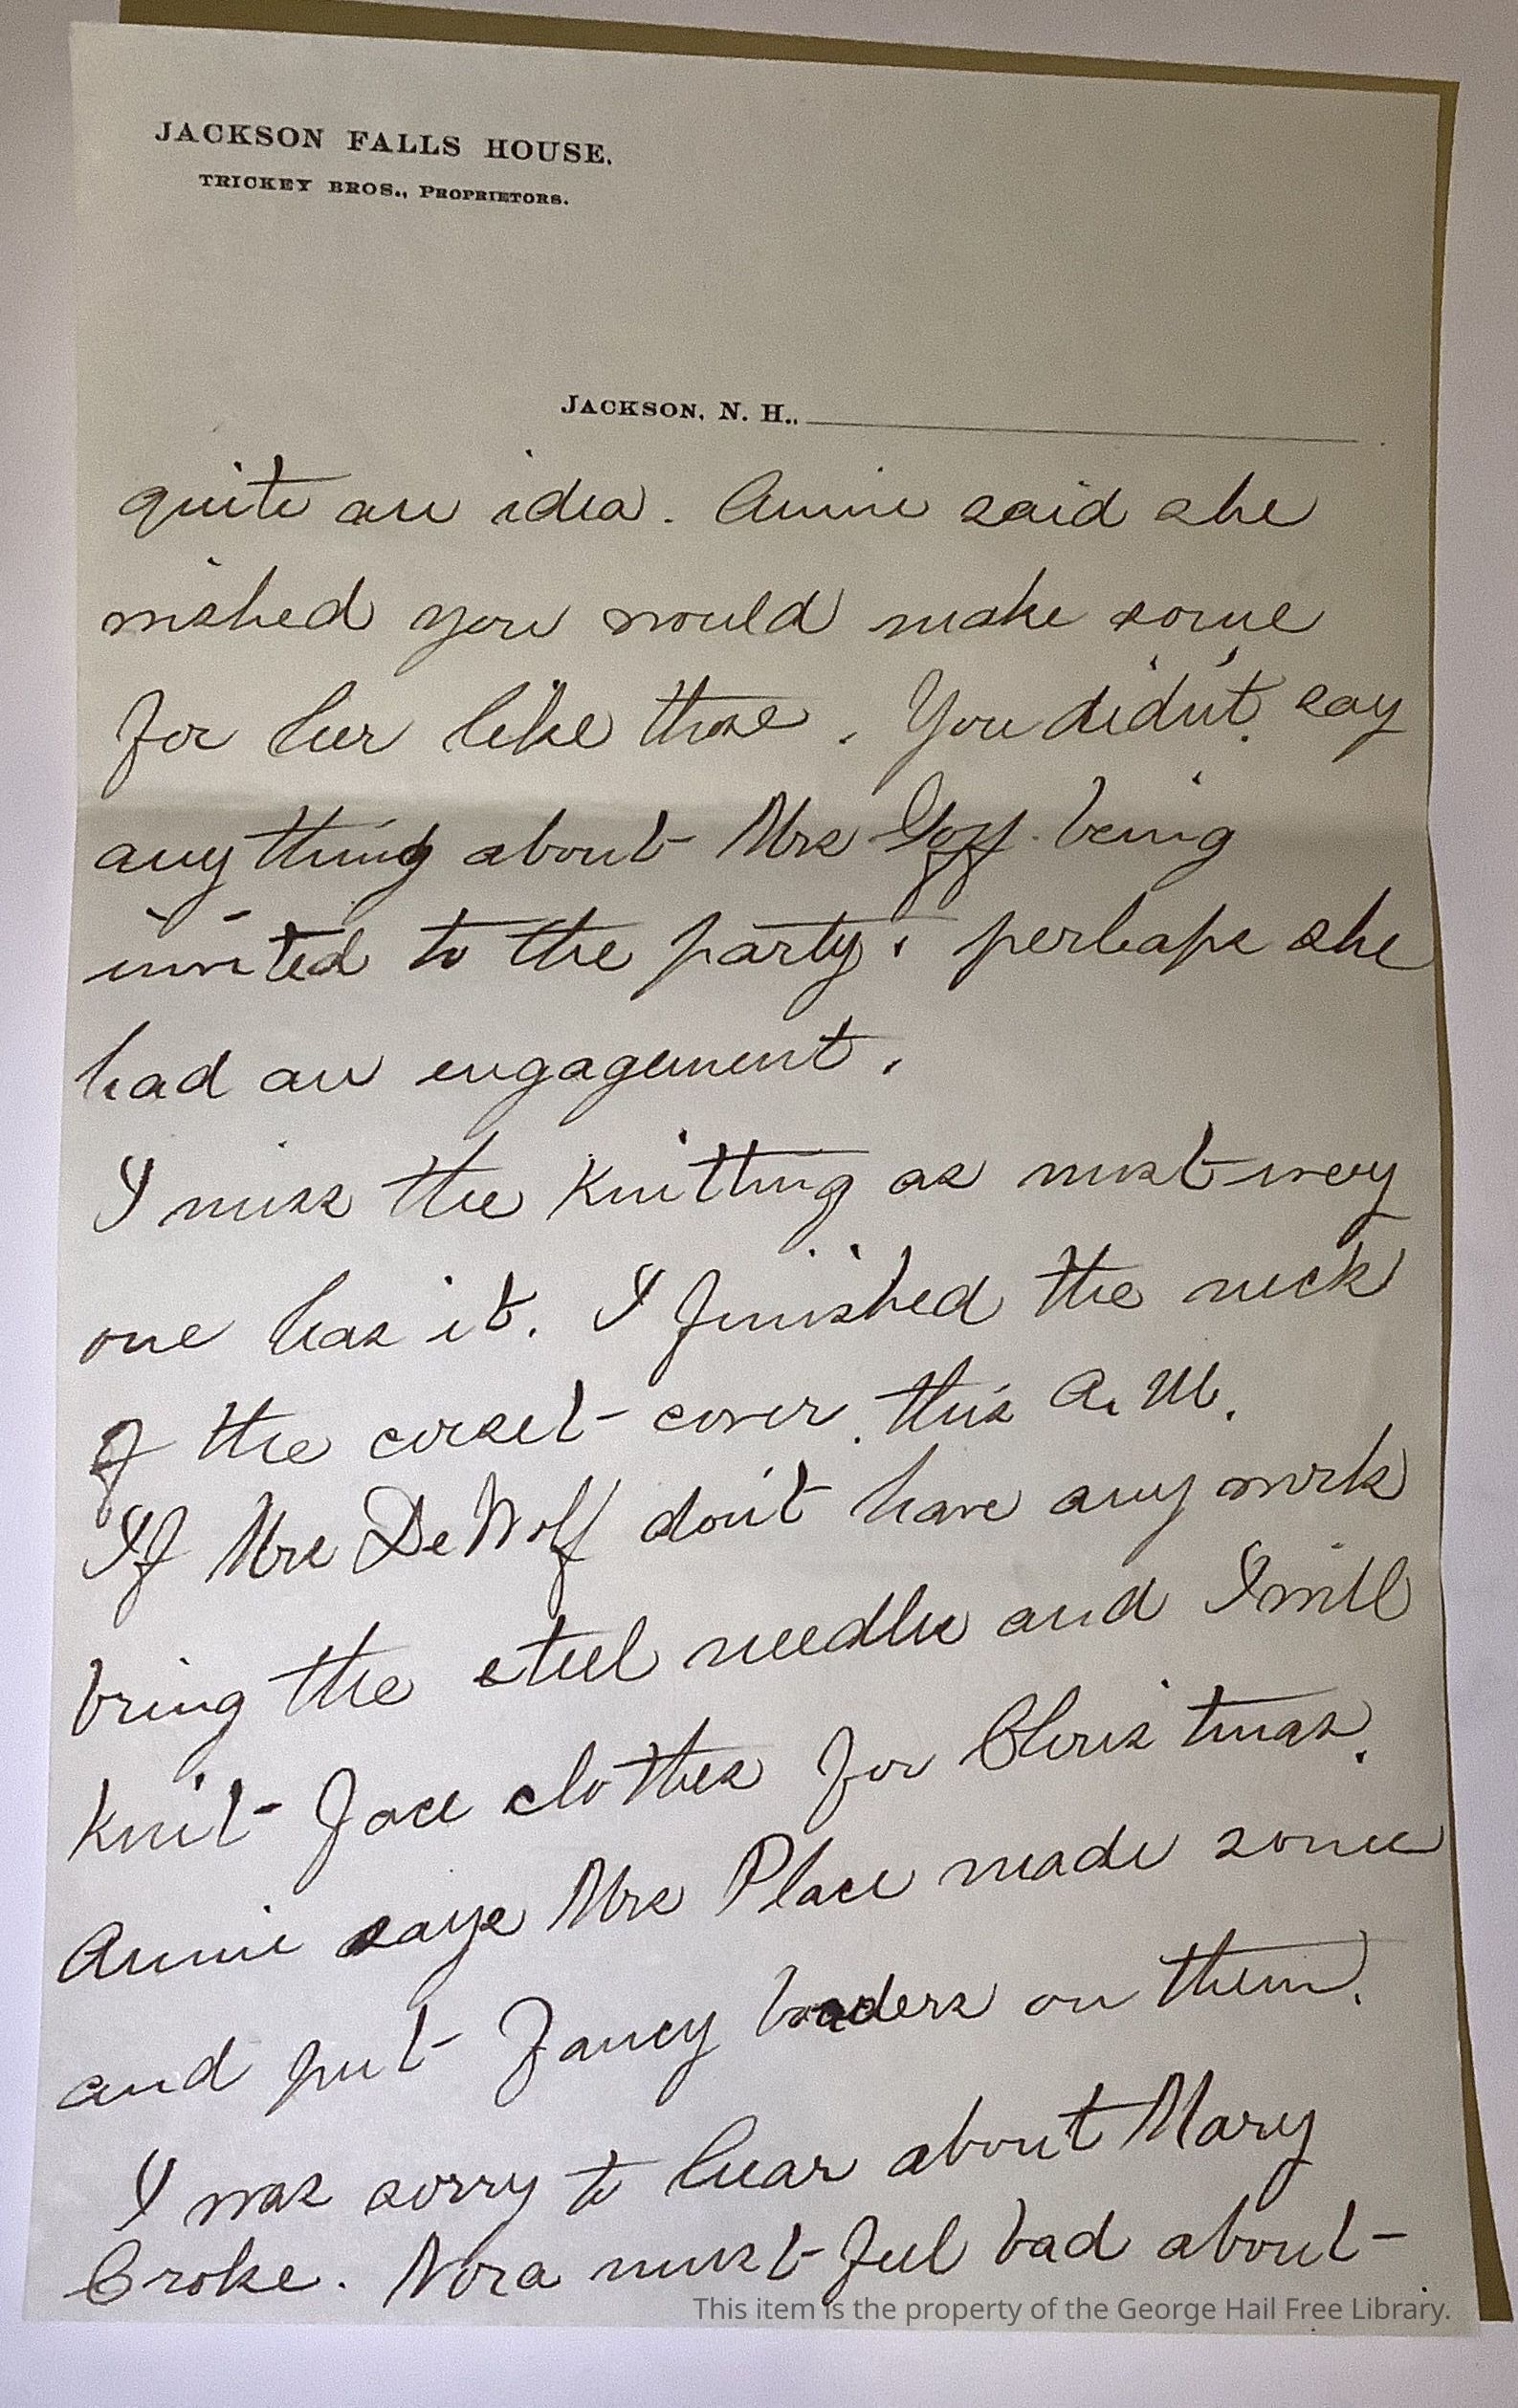 JACKSON FALLS HOUSE.
TRICKEY BROS., PROPRIETORS.
JACKSON, N. H.,
quite an idea. Annie said she
wished you would make some
for her like those. You didn't say
anything about Mrs Goff being
invited to the party, perhaps she
had an engagement.
I miss the knitting as most every
one has it. I finished the neck
of the corset-cover this A. M.
If Mrs DeWolf don't have any work
bring the steel needles and I will
knit face clothes for Christmas.
Annie says Mrs Place made some
and put fancy borders on them.
I was sorry to hear about Mary
Croke. Nora must feel bad about
This item is the property of the George Hail Free Library.